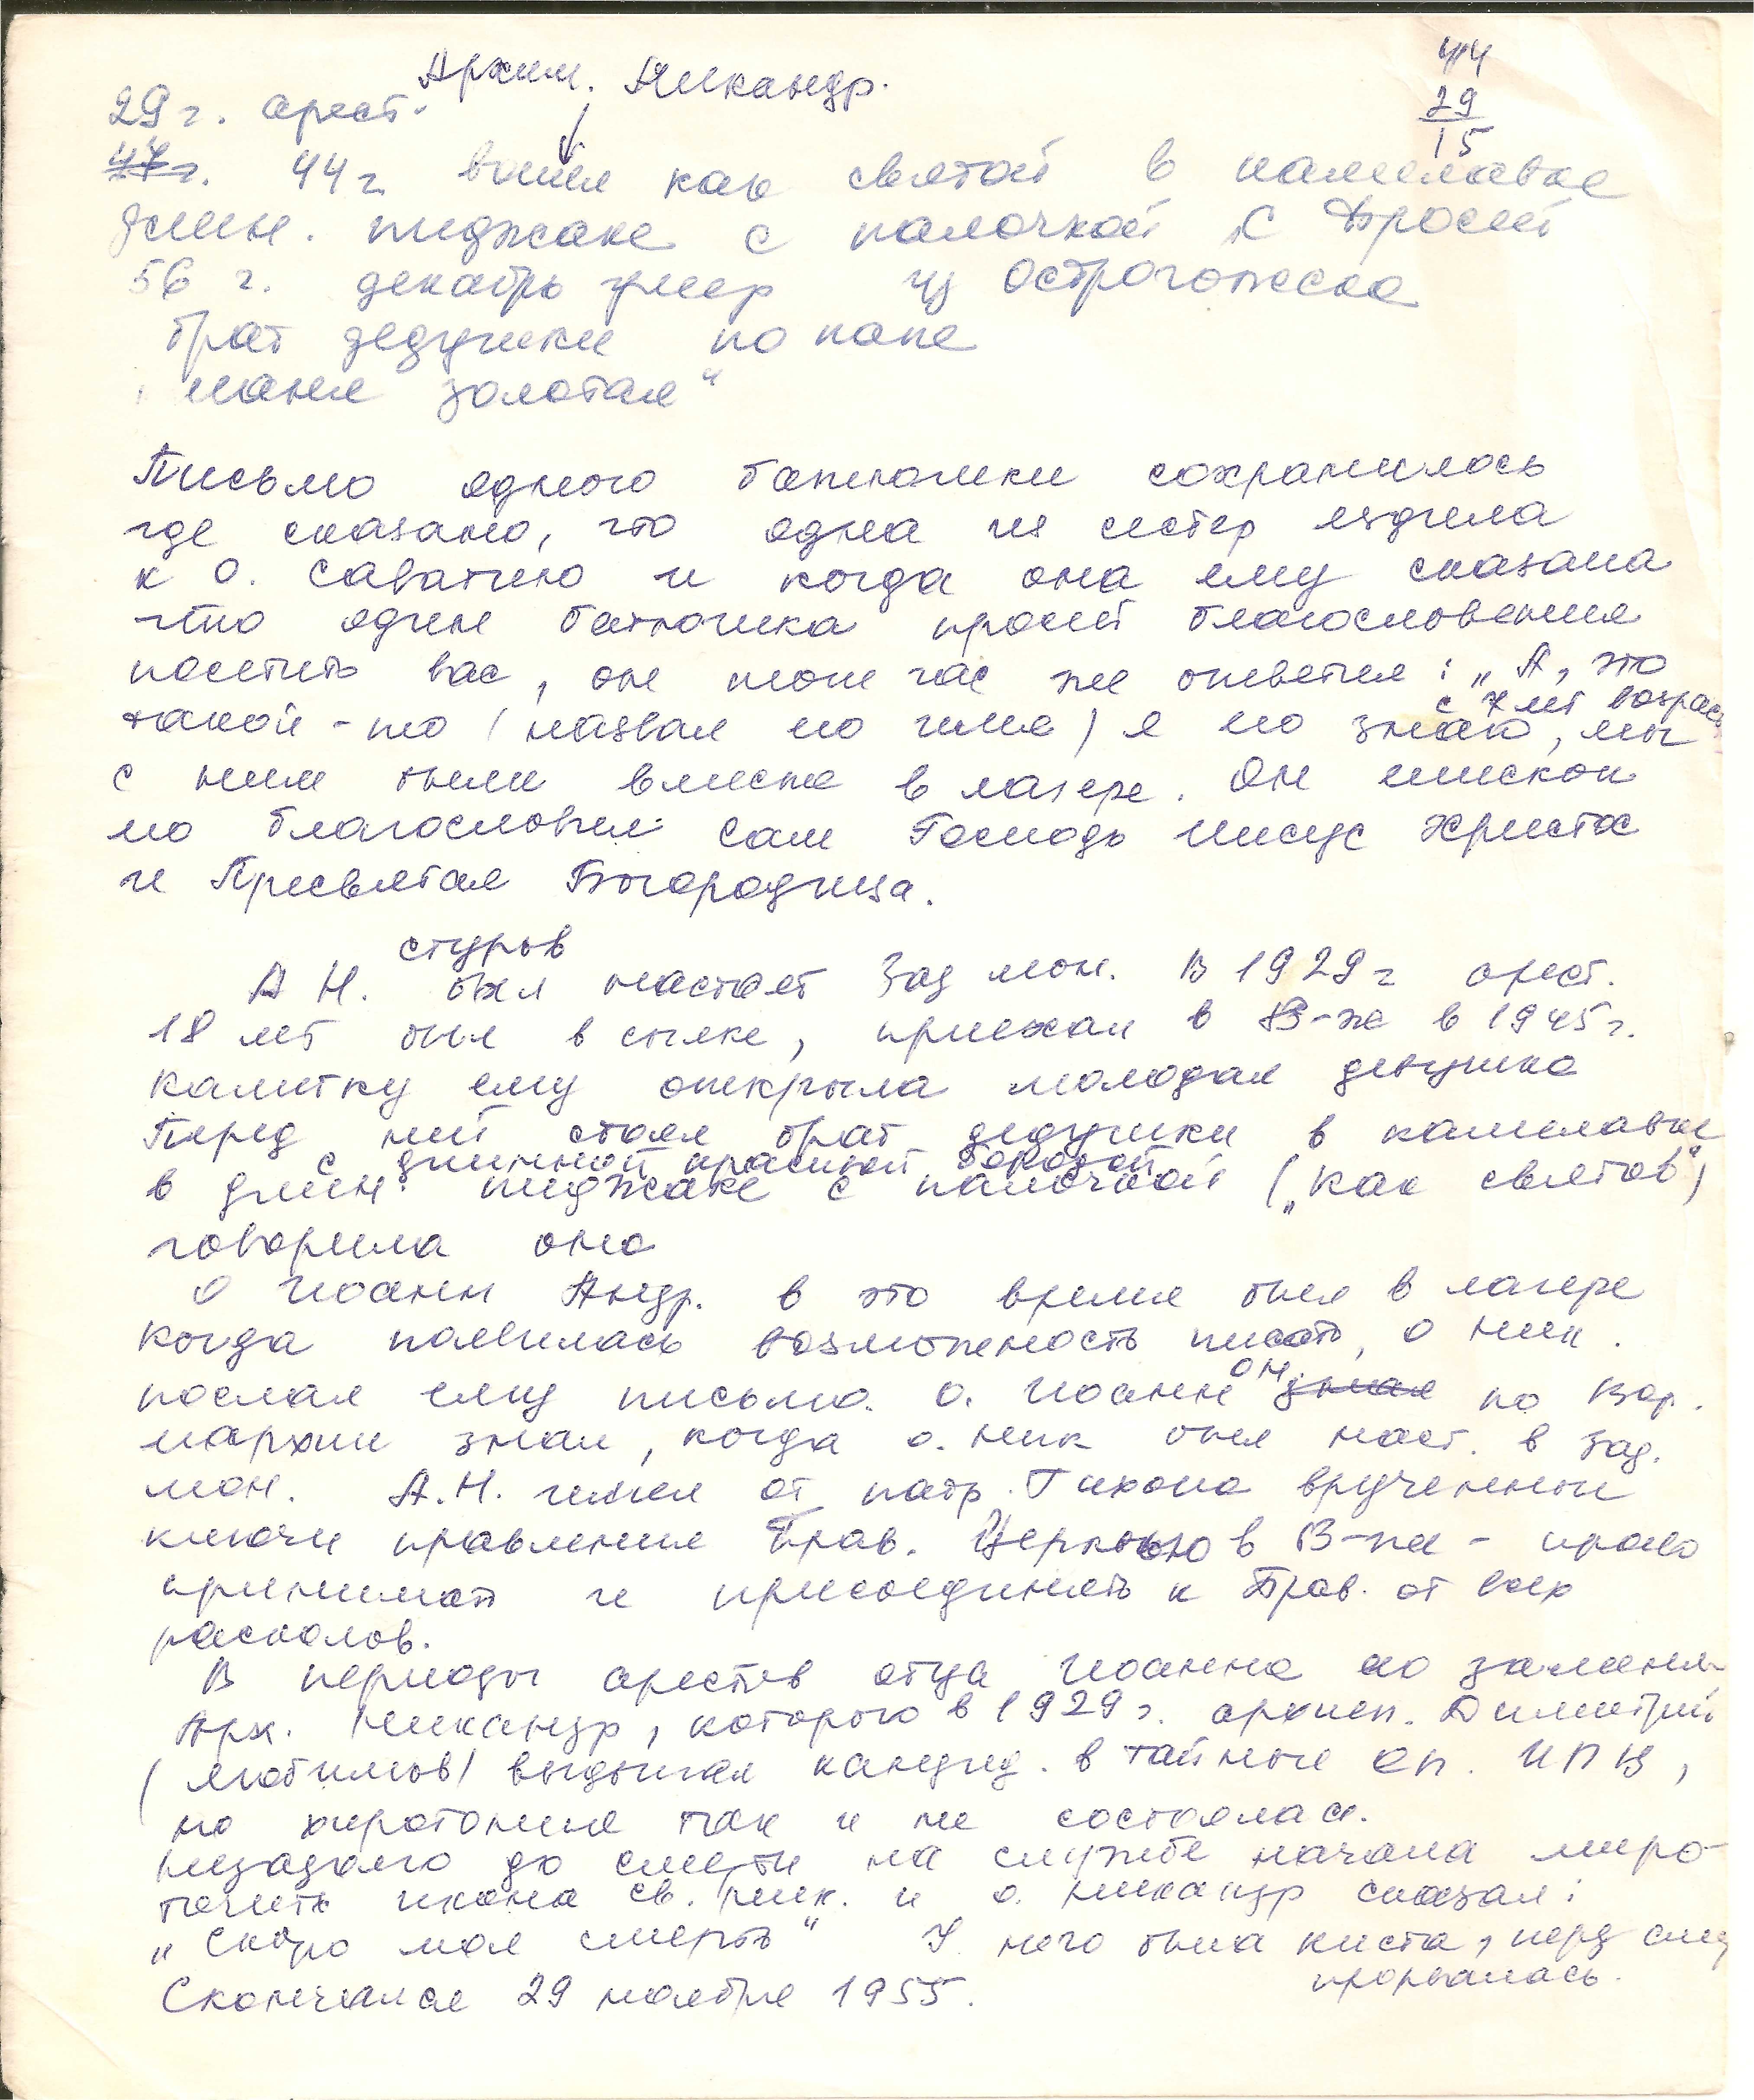 Архим. Никандр.
44
29
15
29 г. арест.
47 г. 44 г вошёл как святой в камилавке
длин. пиджаке с палочкой с Фросей
56 г. декабрь умер из Острогожска
брат дедушки по папе
"маня золотая"
Письмо одного батюшки сохранилось
где сказано, что одна из сестер ездила
к о. Саватию и когда она ему сказала
что один батюшка просит благословения
посетить вас, он тот час же ответил: „А, это
с 7 лет возрас
такой-то (назвал его имя) я его знаю, мы
с ним были вместе в лагере. Он епископ
его благословил сам Господь Иисус Христос
и Пресвятая Богородица.
стуров
А Н. был настоят Зад мон. В 1929 г арест.
18 лет был в сылке, приехал в В-ж в 1945 г.
Калитку ему открыла молодая девушка
Перед ней стоял брат дедушки в камилавке
с длинной красивой бородой
в длин. пиджаке с палочкой („как святой")
говорила она
О Иоанн Андр. в это время был в лагере
когда появилась возможность писать, о Ник.
послал ему письмо. о. Иоанн он знал по Вор.
епархии знал, когда о. Ник был наст. в Зад.
мон. А.Н. имел от патр. Тихона врученные
ключи правления Прав. Церковью в В-же - право
принимать и присоединять к Прав. от всех
расколов.
В периоды арестов отца Иоанна его заменял
Арх. Никандр, которого в 1929 г. архиеп. Димитрий
(Любимов) выдвигал кандид. в тайные еп. ИПЦ,
но хиротония так и не состоялась.
Незадолго до смерти на службе начала миро-
точить икона св. Ник. и о. Никандр сказал:
„Скоро моя смерть" У него была киста, перед смер
прорвалась.
Скончался 29 ноября 1955.